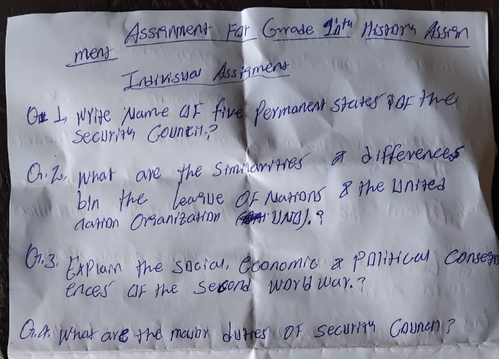 Assignment For Grade 10th History Assign
ment
Individual Assignment
Q. 1, write Name of five Permanent states of the
Security Council?
Q. 2, what are the similarities & differences
b/n the League of Nations & the United
nation Organization (UNO).?
Q. 3. Explain the social, economic & political consequ
ences of the second world war.?
Q. 4. what are the major duties of security council?